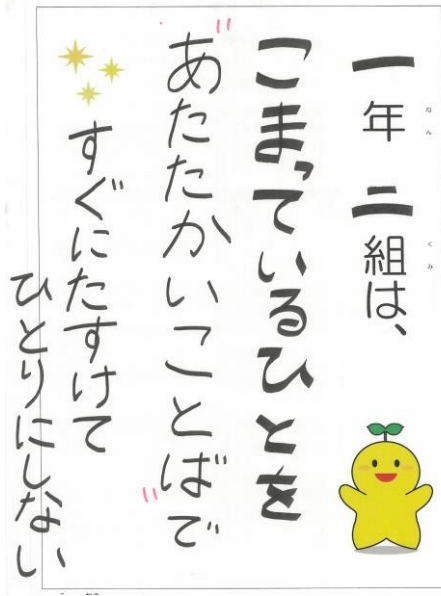 一年二組は、
こまっているひとを
"あたたかいことば"で
すぐにたすけて
ひとりにしない